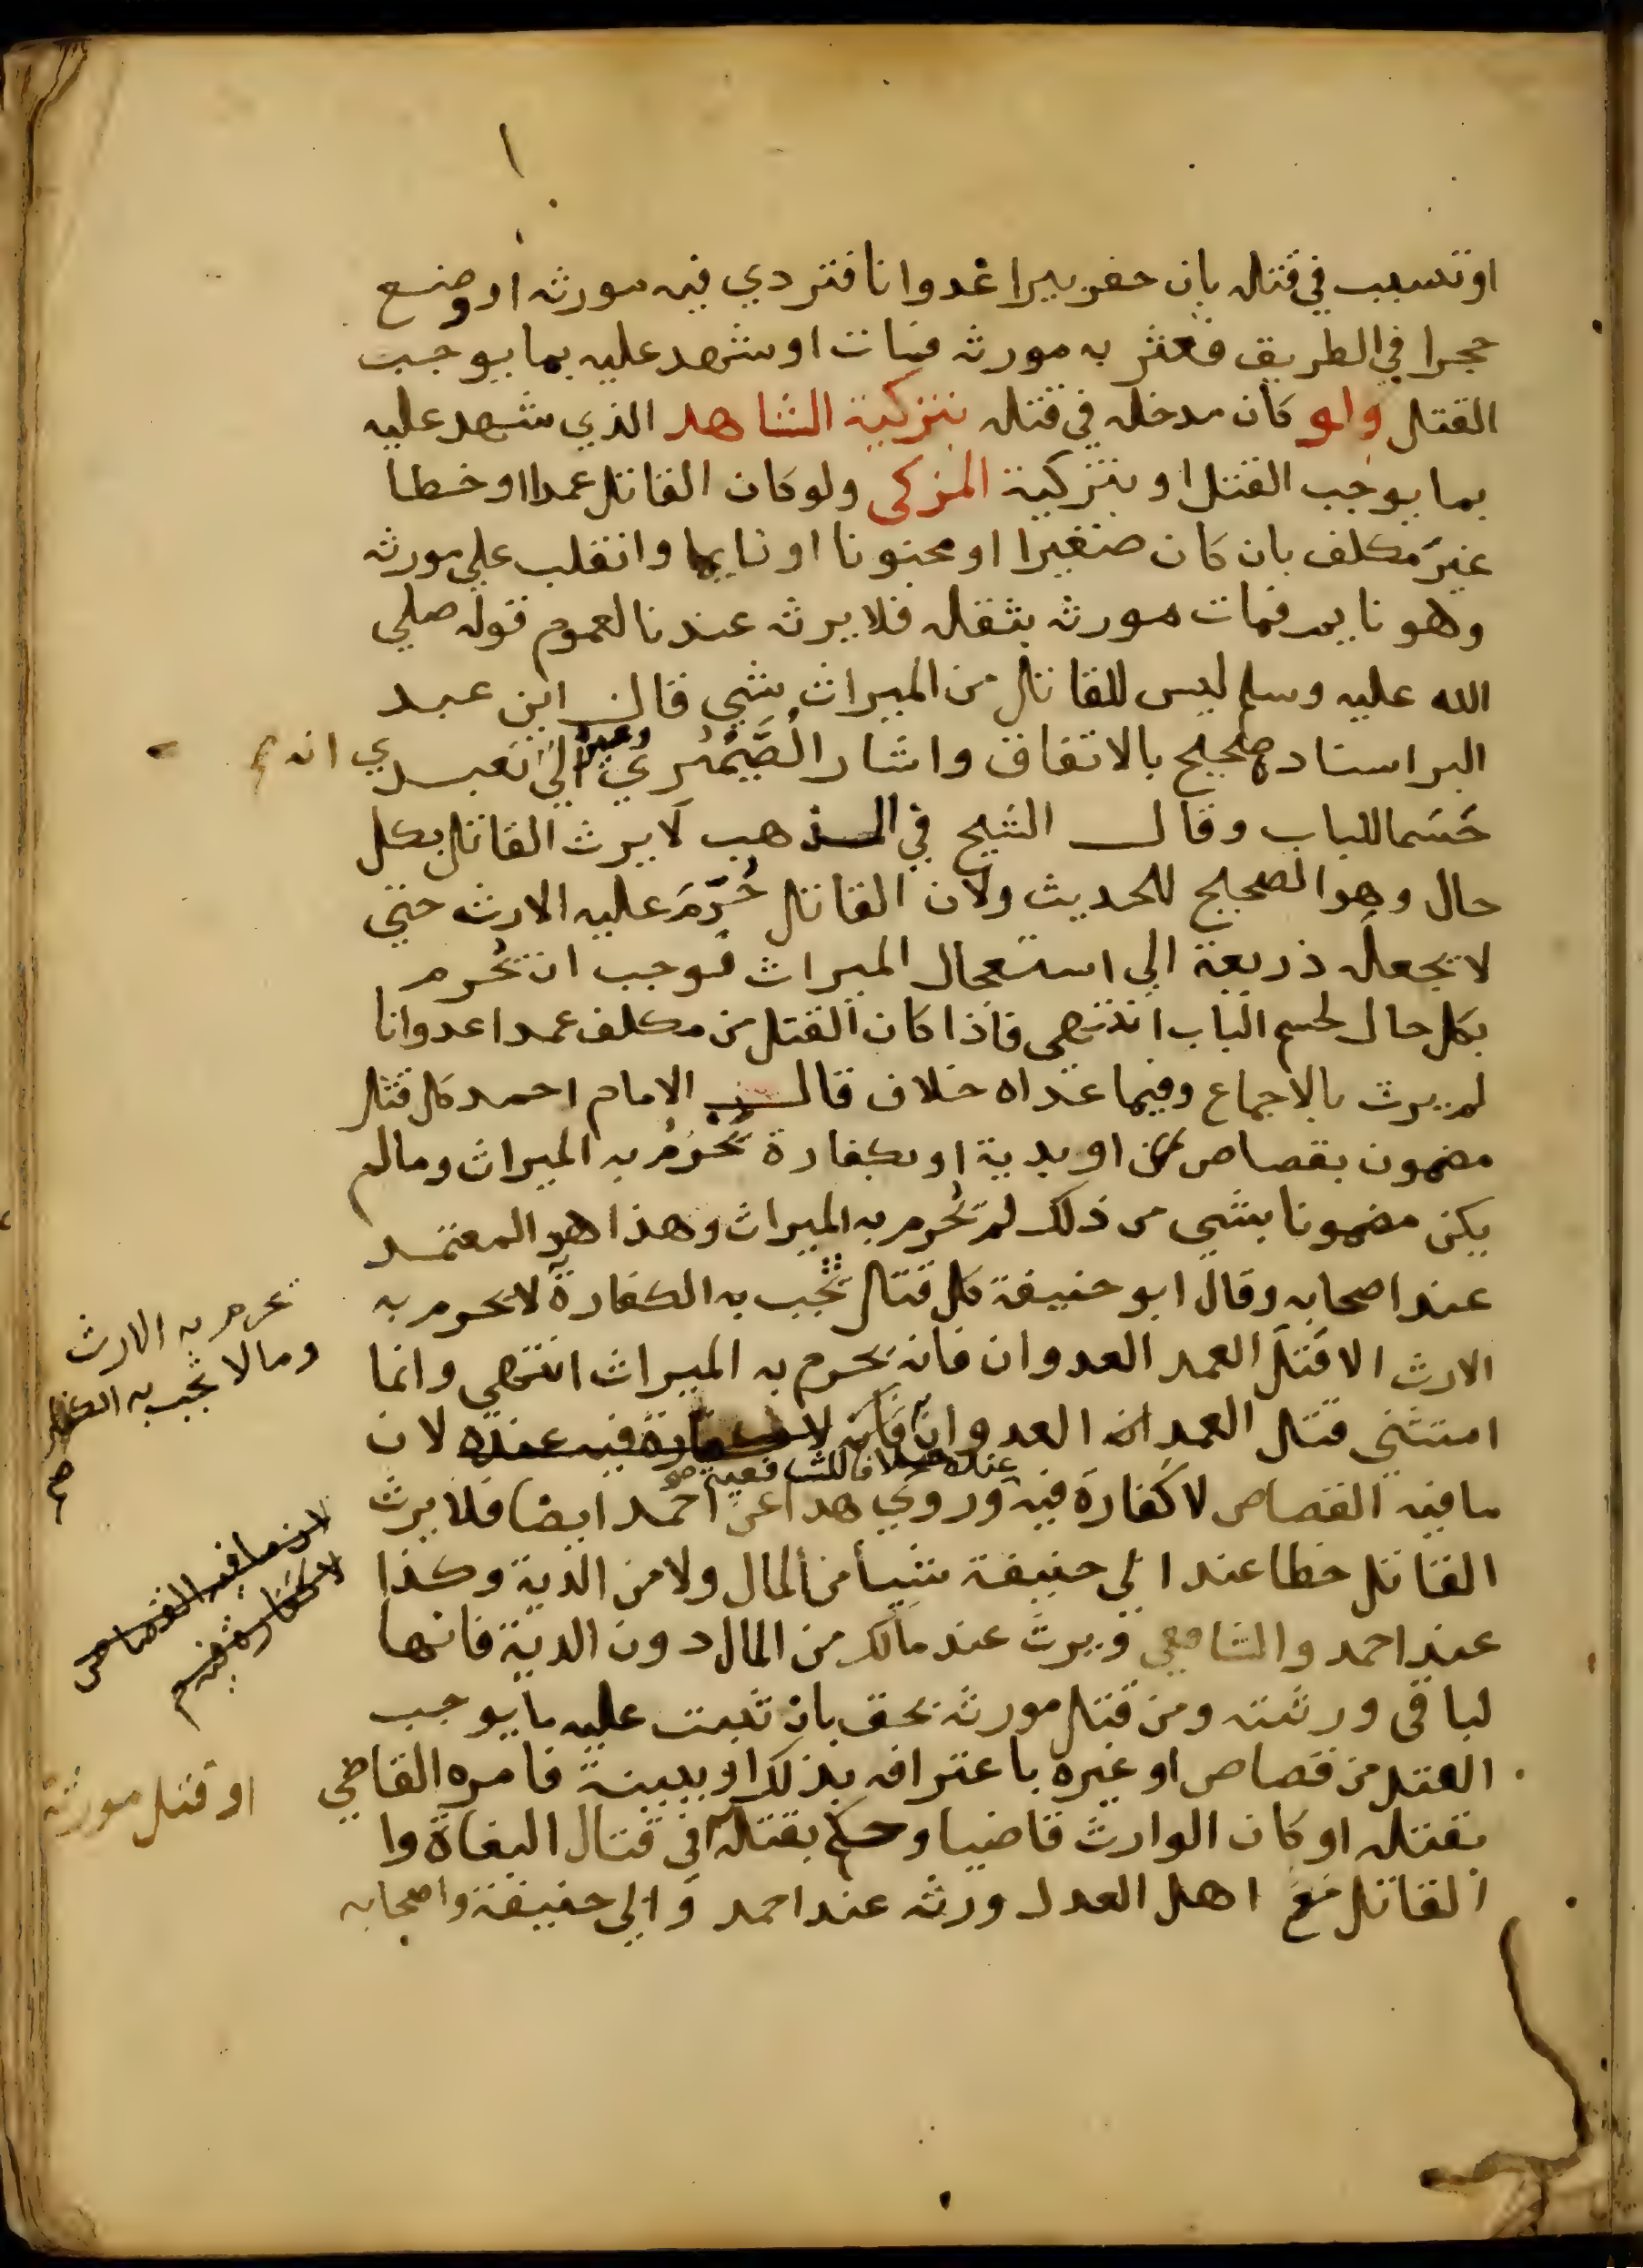 او تسبب في قتله بان حفر بيرا عدوانا فتردي فيه مورثه او وضع
حجرا في الطريق فعثر به مورثه فمات او شهد عليه بما يوجب
القتل ولو كان مدخله في قتله بتزكية الشاهد الذي شهد عليه
بما يوجب القتل او بتزكية المزكى ولو كان القاتل عمدا او خطا
غير مكلف بان كان صغيرا او مجنونا او نايما وانقلب علي مورثه
وهو نايم فمات مورثه بثقله فلا يرثه عندنا لعموم قوله صلي
الله عليه وسلم ليس للقاتل من الميراث شي قال ابن عبد
البر اسناده صحيح بالاتفاق واشار الصَّيْمُري وغيره الي تعبدي انه
حَسَما للباب وقال الشيخ في المذهب لا يرث القاتل بكل
حال وهو الصحيح للحديث ولان القاتل حُرِّمَ عليه الارث حتي
لا يجعله ذريعة الي استعجال الميراث فوجب ان يحُرم
بكل حال لحسم الباب انتهي فاذا كان القتل من مكلف عمدا عدوانا
لم يرث بالاجماع وفيما عداه خلاف قال الامام احمد كل قتل
مضمون بقصاص او بدية او بكفارة يُحْرَمُ به الميراث وما لم
يكن مضمونا بشي من ذلك لم يُحرم به الميراث وهذا هو المعتمد
عند اصحابه وقال ابو حنيفة كل قتل تجب به الكفارة لا يحرم به
يحرم به الارث
وما لا تجب به الكفارة
صح
الارث الا قتل العمد العدوان فانه يحرم به الميراث انتهي وانما
استثني قتل العمد العدوان فانه لا كفارة فيه عنده لان
عنده خلافا للشافعية صح
ما فيه القصاص لا كفارة فيه وروي هذا عن احمد ايضا فلا يرث
لان ما فيه القصاص
لا كفارة فيه
القاتل خطا عند ابي حنيفة شيأ من المال ولا من الدية وكذا
عند احمد والشافعي ويرث عند مالك من المال دون الدية فانها
لباقي ورثته ومن قتل مورثه بحق بان ثبت عليه ما يوجب
القتل من قصاص او غيره باعترافه بذلك او ببينة فامره القاضي
او قتل مورثه
بقتله او كان الوارث قاضيا وحكم بقتله في قتال البغاة وا
القاتل مع اهل العدل ورثه عند احمد وابي حنيفة واصحابه